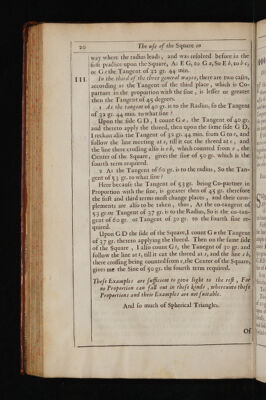 20 The use of the Square in
way where the radius leads, and was resolved before in the
first practice upon the Square, As F G, to G a, So E b, to b s
or G t the Tangent of 32 gr. 44 min.
III In the third of the three general wayes, there are two cases,
according as the Tangent of the third place, which is Co-
partner in the proportion with the sine, is lesser or greater
then the Tangent of 45 degrees.
1 As the tangent of 40 gr. is to the Radius, so the Tangent
of 32 gr. 44 min. to what sine?
Upon the side G D, I count G a, the Tangent of 40 gr.
and thereto apply the thred, then upon the same side G D,
I reckon also the Tangent of 32 gr. 44 min. G m, and
follow the line meeting at s, till it cut the thred at t, and
the line there crossing also is b, which counted from the
Center of the Square, gives the sine of 50 gr. which is the
fourth term required.
2 As the Tangent of 60 gr. is to the radius, So the Tan-
gent of 53 gr. to what sine?
Here because the Tangent of 53 gr. being Co-partner in
Proportion with the sine, is greater then of 45 gr. therefore
the first and third terms must change places, and their com-
plements are also to be taken, thus, As the co-tangent of
53 gr. or Tangent of 37 gr. is to the Radius, So is the co-tan-
gent of 60 gr. or Tangent of 30 gr. to the fourth sine re-
quired.
Upon G D the side of the Square, I count G the Tangent
of 37 gr. thereto applying the thred. Then on the same side
of the Square, I also count G t, the Tangent of 30 gr. and
follow the line at t, till it cut the thred at s, and the line s b,
there crossing being counted from the Center of the Square,
gives me the Sine of 50 gr. the fourth term required.
These Examples are sufficient to give light to the rest, For
no Proportion can fall out in these kinds, whereunto these
Proportions and their Examples are not suitable.
And so much of Spherical Triangles.
Of